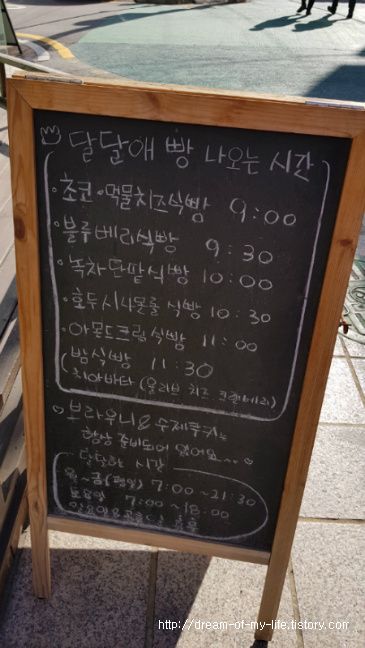 달달애 빵 나오는 시간
·초코·먹물치즈식빵 9:00
·블루베리식빵 9:30
·녹차단팥식빵 10:00
·호두시나몬롤식빵 10:30
·아몬드크림식빵 11:00
밤식빵 11:30
치아바타 (올리브 치즈 크랜베리)
♡브라우니& 수제쿠키는
항상 준비되어 있어요~~♡
달달한 시간
월~금(평일) 7:00~21:30
토요일 7:00~18:00
일요일&공휴일은 휴무
http://dream-of-my-life.tistory.com